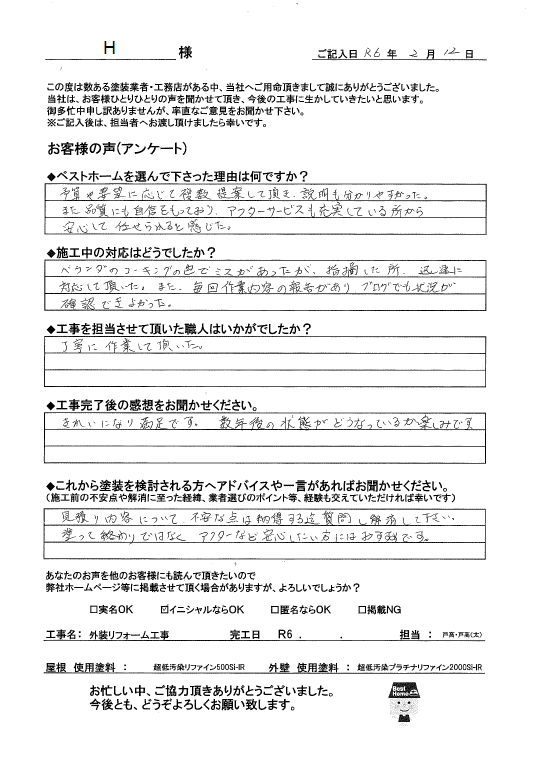 H 様
ご記入日 R6 年 2 月 12 日
この度は数ある塗装業者・工務店がある中、当社へご用命頂きまして誠にありがとうございました。
当社は、お客様ひとりひとりの声を聞かせて頂き、今後の工事に生かしていきたいと思います。
御多忙中申し訳ありませんが、率直なご意見をお聞かせ下さい。
※ご記入後は、担当者へお渡し頂けましたら幸いです。
お客様の声(アンケート)
◆ベストホームを選んで下さった理由は何ですか?
予算や要望に応じて複数提案して頂き、説明も分かりやすかった。
また品質にも自信をもっており、アフターサービスも充実している所から
安心して任せられると感じた。
◆施工中の対応はどうでしたか?
ベランダのコーキングの色でミスがあったが、指摘した所、迅速に
対応して頂いた。また、毎回作業内容の報告があり ブログでも状況が
確認できよかった。
◆工事を担当させて頂いた職人はいかがでしたか?
丁寧に作業して頂いた。
◆工事完了後の感想をお聞かせください。
きれいになり満足です。 数年後の状態がどうなっているか楽しみです
◆これから塗装を検討される方へアドバイスや一言があればお聞かせください。
(施工前の不安点や解消に至った経緯、業者選びのポイント等、経験も交えていただければ幸いです)
見積り内容について、不安な点は納得する迄質問し解消して下さい。
塗って終わりではなく アフターなど安心したい方にはおすすめです。
あなたのお声を他のお客様にも読んで頂きたいので
弊社ホームページ等に掲載させて頂く場合がありますが、よろしいでしょうか?
□実名OK ☑イニシャルならOK □匿名ならOK □掲載NG
工事名: 外装リフォーム工事 完工日 R6 . . 担当 : 戸高・戸高(太)
屋根 使用塗料 : 超低汚染リファイン500Si-IR 外壁 使用塗料 : 超低汚染プラチナリファイン2000SI-IR
お忙しい中、ご協力頂きありがとうございました。
今後とも、どうぞよろしくお願い致します。
Best
Home